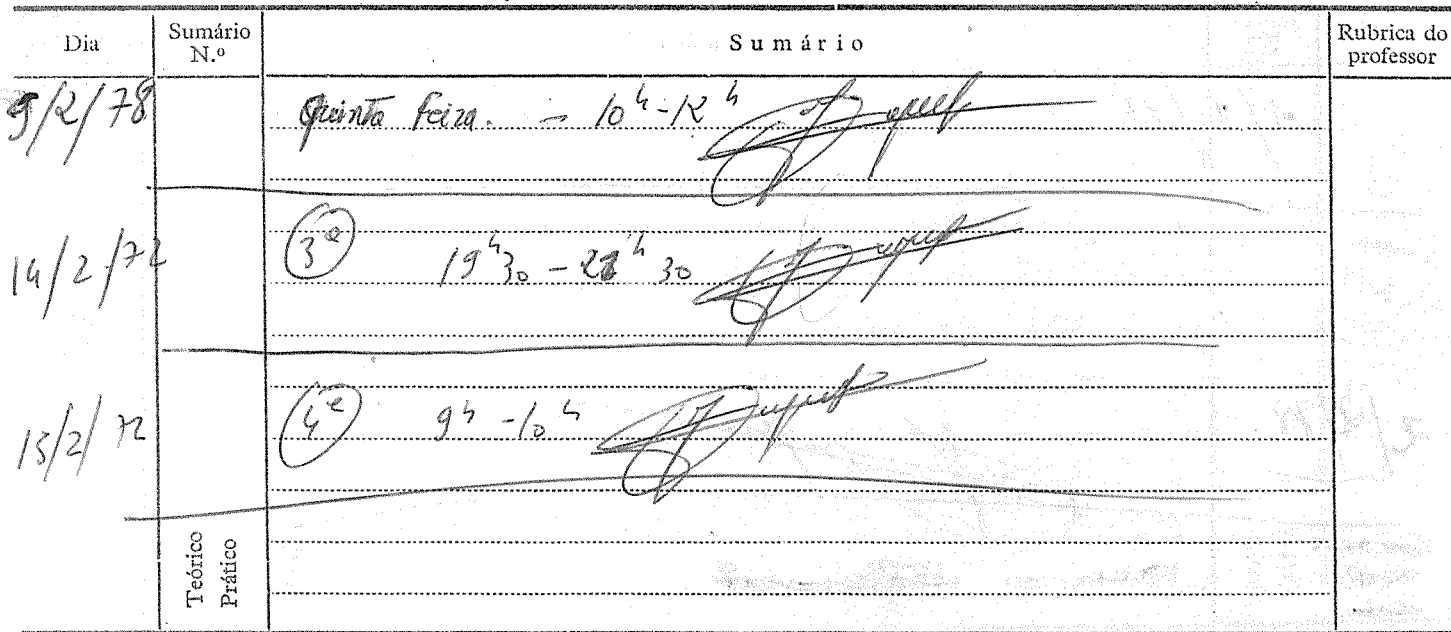 Dia Sumário N.º Sumário Rubrica do professor
9/2/78 Quinta feira. - 10h-12h
14/2/72 3ª 19h30 - 21h30
15/2/72 4ª 9h - 10h
Teórico
Prático